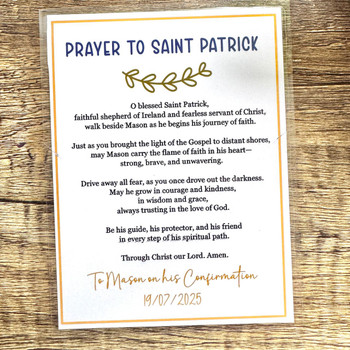 PRAYER TO SAINT PATRICK
O blessed Saint Patrick,
faithful shepherd of Ireland and fearless servant of Christ,
walk beside Mason as he begins his journey of faith.
Just as you brought the light of the Gospel to distant shores,
may Mason carry the flame of faith in his heart—
strong, brave, and unwavering.
Drive away all fear, as you once drove out the darkness.
May he grow in courage and kindness,
in wisdom and grace,
always trusting in the love of God.
Be his guide, his protector, and his friend
in every step of his spiritual path.
Through Christ our Lord. Amen.
To Mason on his Confirmation
19/07/2025